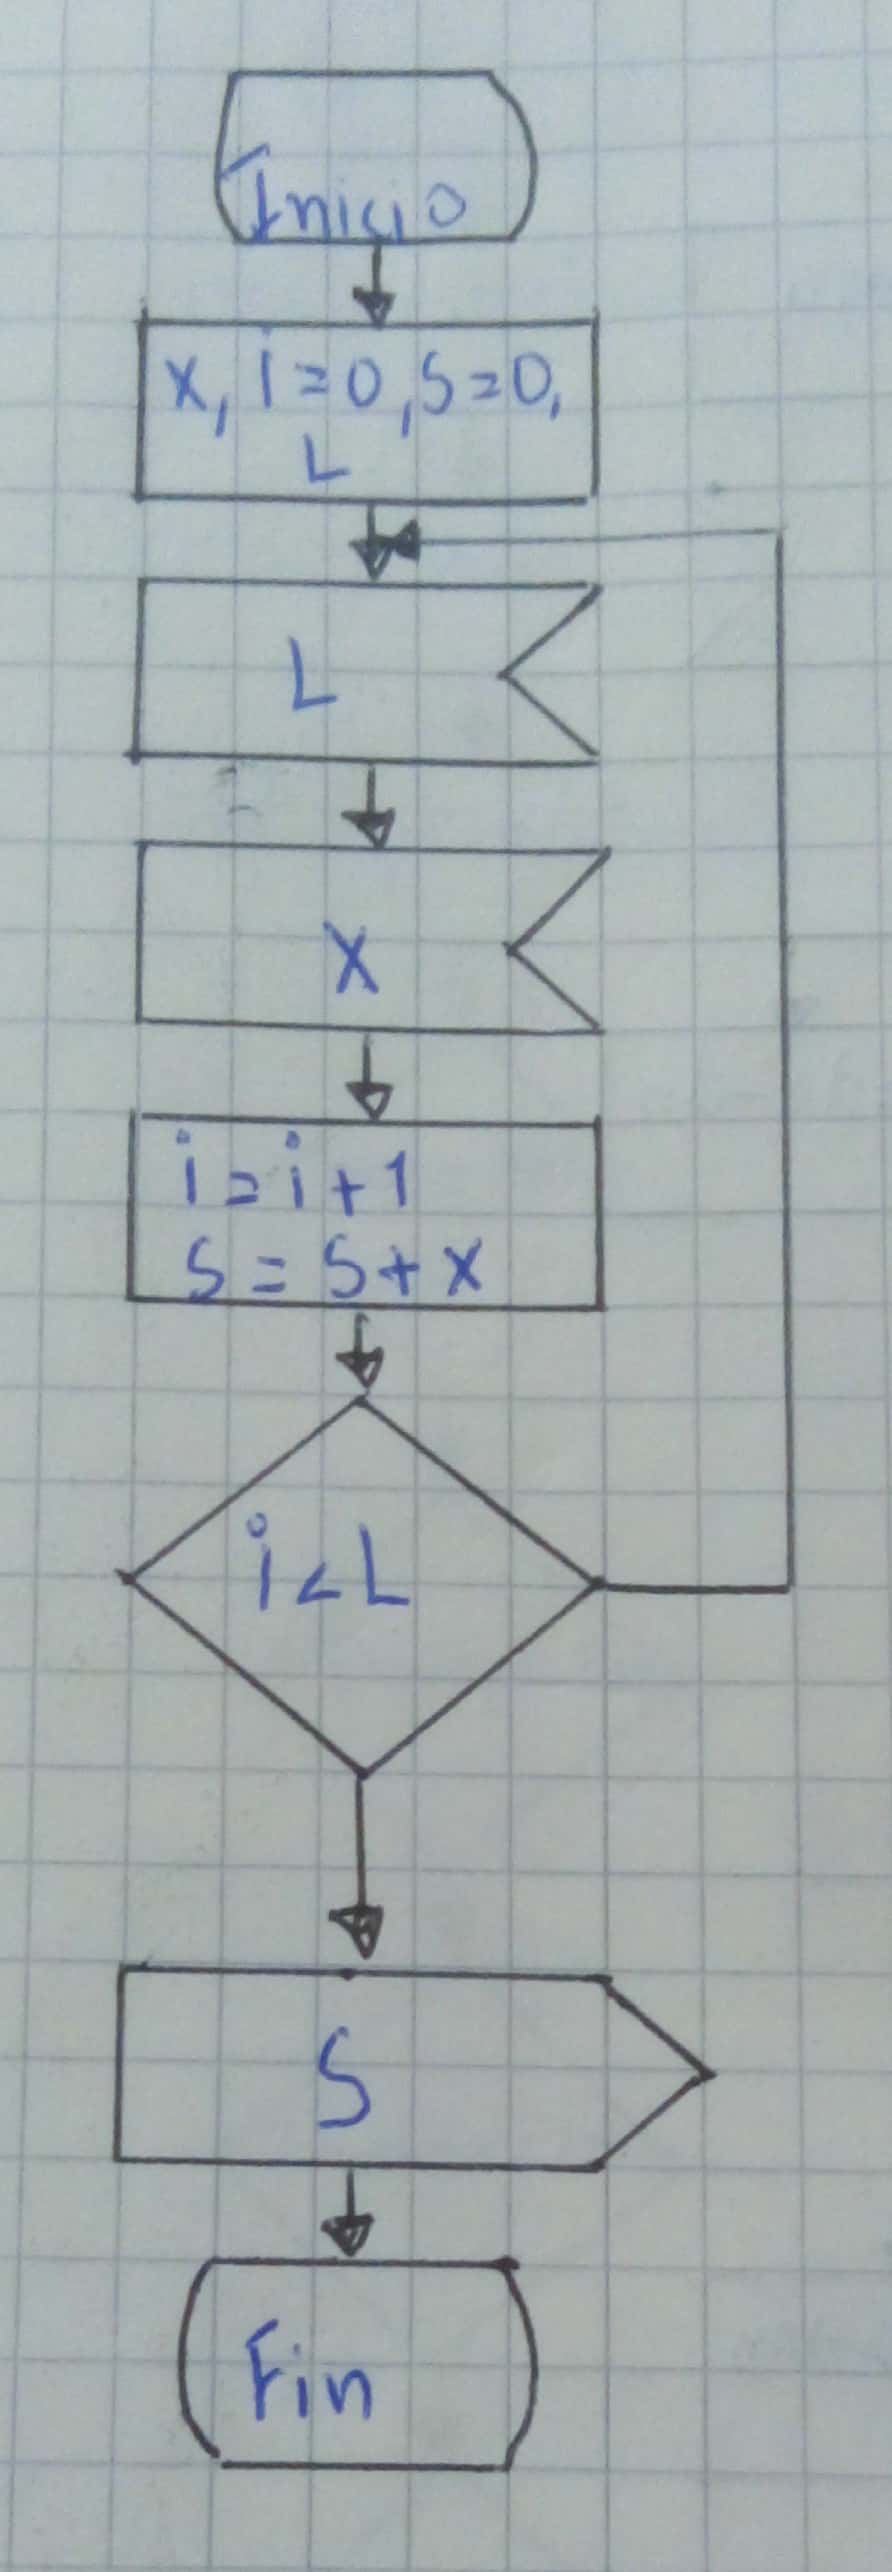 Inicio
x, i=0, S=0,
L
L
X
i=i+1
S=S+x
i<L
S
Fin